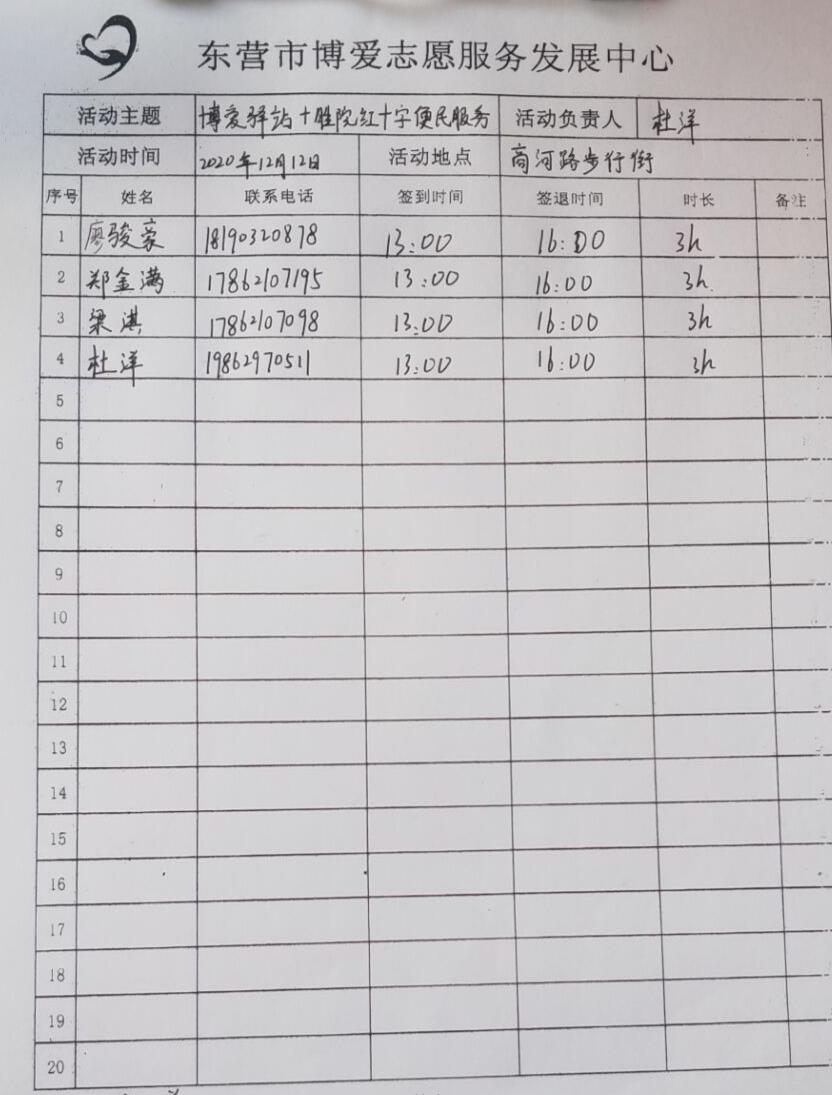 东营市博爱志愿服务发展中心
活动主题 博爱驿站+胜院红十字便民服务 活动负责人 杜洋
活动时间 2020年12月12日 活动地点 商河路步行街
序号 姓名 联系电话 签到时间 签退时间 时长 备注
1 廖骏豪 18190320878 13:00 16:00 3h
2 郑金满 17862107195 13:00 16:00 3h
3 梁淇 17862107098 13:00 16:00 3h
4 杜洋 19862970511 13:00 16:00 3h
5
6
7
8
9
10
11
12
13
14
15
16
17
18
19
20